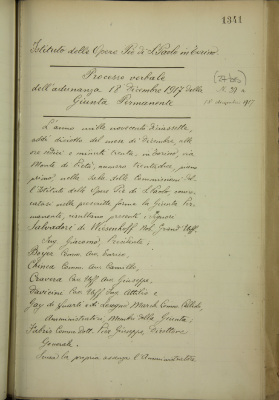 1341
Istituto delle Opere Pie di S. Paolo in Torino
Processo verbale
dell'adunanza 18 Dicembre 1917 della
Giunta Permanente
N. 39
18 dicembre 1917
L'anno mille novecento diciassette,
addì diciotto del mese di Dicembre, alle
ore sedici e minuti trenta, in Torino, via
Monte di Pietà, numero trentadue, piano
primo, nella sala delle Commissioni del
l'Istituto delle Opere Pie di S. Paolo, convo
catasi nelle prescritte forme la Giunta Per
manente, risultano presenti i Signori
Salvadore di Wiesenhoff Nob. Grand' Uff.
Ing. Giacomo, Presidente;
Boyer Comm. Avv. Enrico,
Chiesa Comm. Avv. Camillo,
Cravera Cav. Uff. Avv. Giuseppe,
Cav. Uff. Ing. Attilio e
Gay di Quarti e di Lesegno March. Comm.
Amministratori, Membri della Giunta;
Fabris Comm. Dott. Prof. Giuseppe, Direttore
Generale.
Scusò la propria assenza l'Amministratore